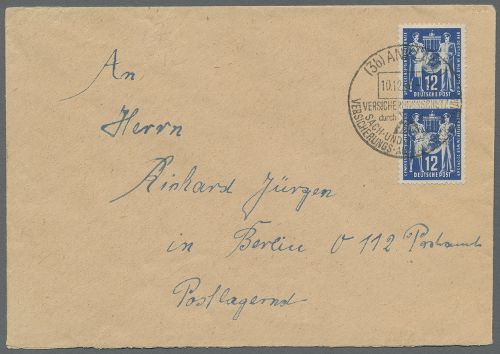 An
Herrn
Richard Jürgen
in Berlin O 112 Postamt
Postlagernd
(3b) ANK
10.12
VERSICHER
durch
SACH-UND
VERSICHERUNGS-A
12
DEUTSCHE POST
12
DEUTSCHE POST